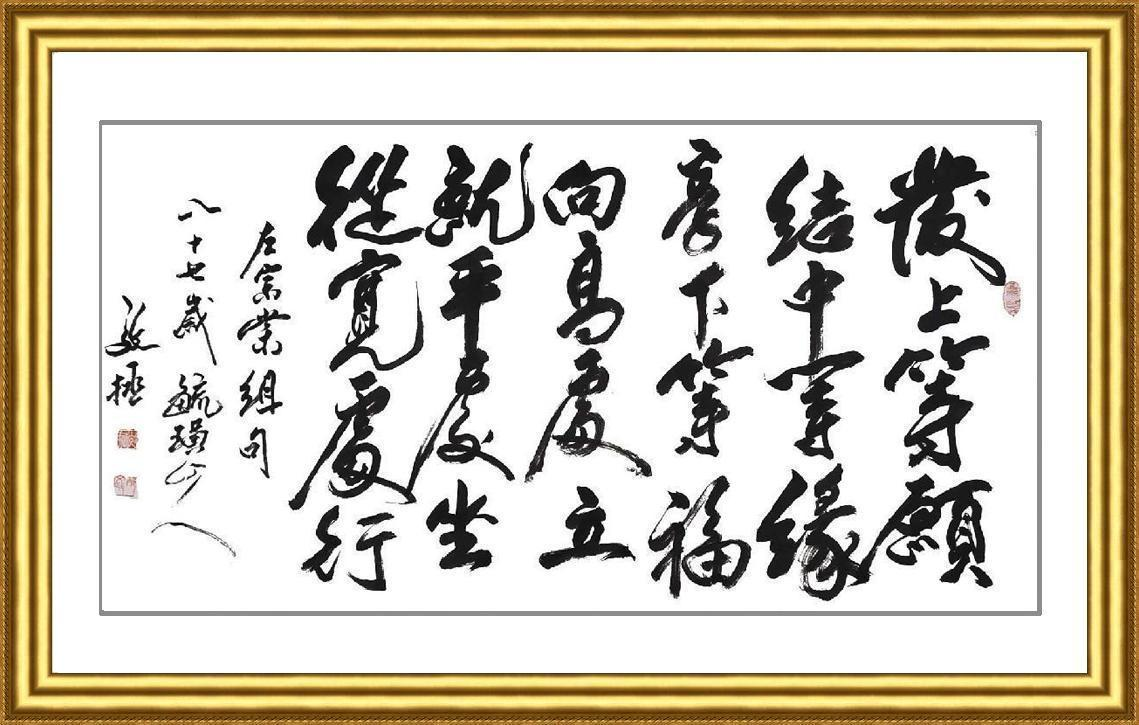 發上等願
結中等緣
享下等福
向高處立
就平處坐
從寬處行
左宗業組句
八十七歲 毓璜山人